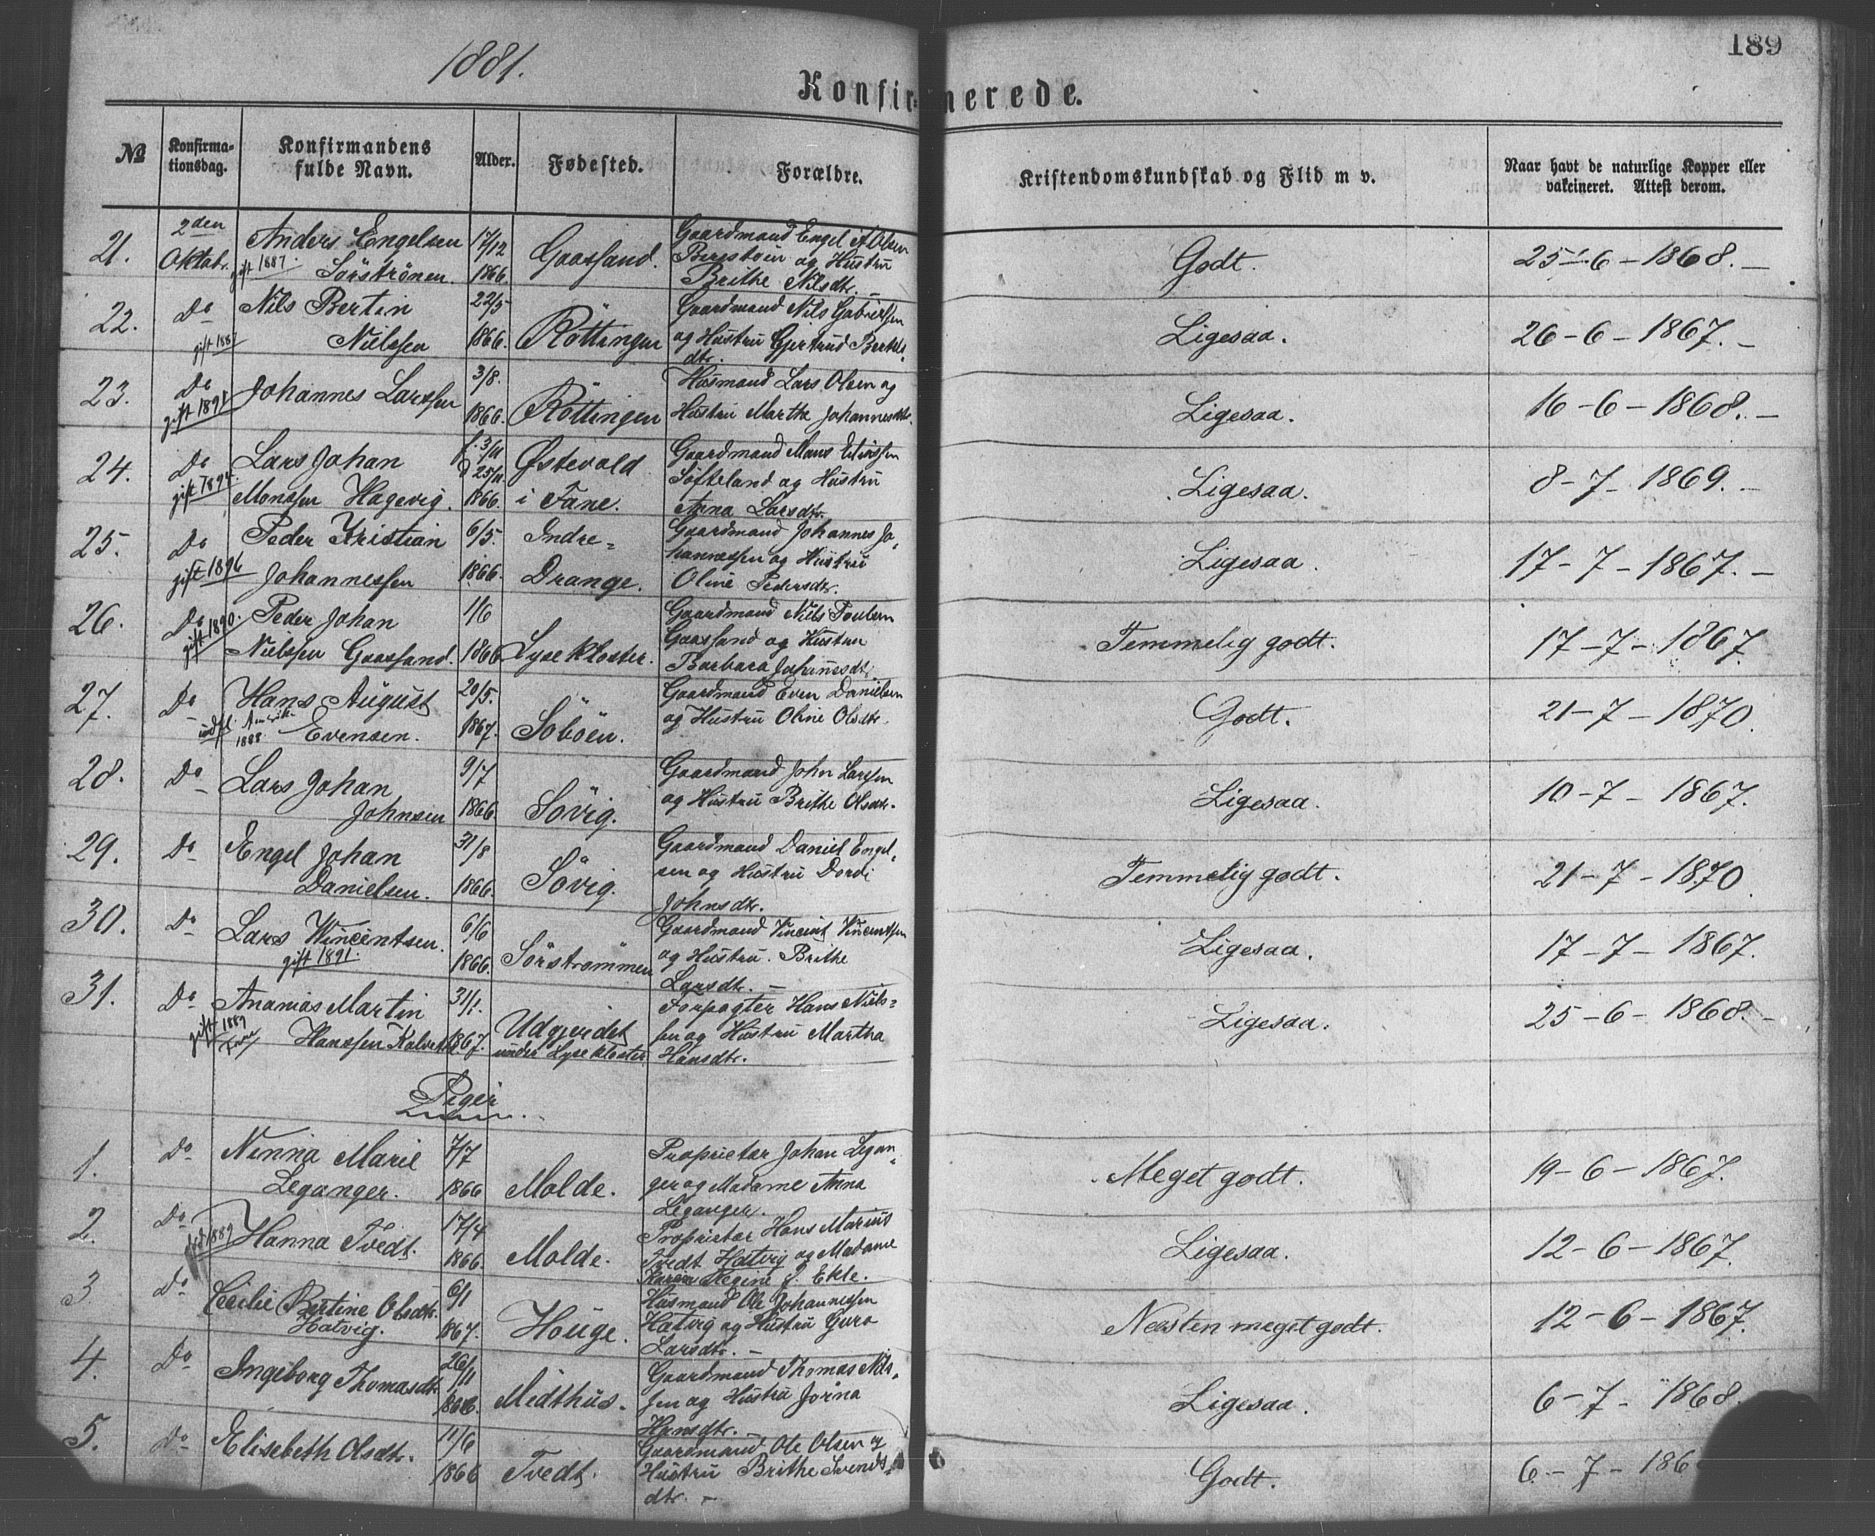 1881.
189
Konfirmerede.
No
Konfirma-
tionsdag.
Konfirmandens
fulde Navn.
Alder.
Fødested.
Forældre.
Kristendomskundskab og Flid m v.
Naar havt de naturlige Kopper eller
vakcineret. Attest derom.
21. 2den Oktobr. Anders Engelsen 17/12 Gaassand. Gaardmand Engel A Olsen
gift 1887. Sörströnen. 1866. og Hustru
Brithe Nilsdtr. Godt. 25-6-1868.
22. Do Nils Bertin 22/5 Röttingen Gaardmand Nils Gabrielsen
gift 1887 Nielssen 1866. og Hustru Gjertrud Bertels-
dtr. Ligesaa. 26-6-1867.
23. Do Johannes Larssen 3/8. Röttingen Husmand Lars Olsen og
gift 1891 1866. Hustru Martha Johannesdtr. Ligesaa. 16-6-1868.
24. Do Lars Johan f. 3/11 Østevold Gaardmand Mons
gift 1894. Monssen Hagevig. d 25/11 1866. i Fane. Søfteland og Hustru
Anna Larsdtr. Ligesaa. 8-7-1869.
25. Do Peder Kristian 6/5. Indre- Gaardmand Johannes Jo-
gift 1896 Johannessen 1866. Drange. hannessen og Hustru
Oline Pedersdtr. Ligesaa. 17-7-1867.
26. Do Peder Johan 1/6 Lysekloster. Gaardmand Nils Poulsen
gift 1890. Nielssen Gaassand. 1866 Gaassand og Hustru
Barbara Johannesdtr. Temmelig godt. 17-7-1867.
27. Do Hans August 20/5. Söböen. Gaardmand Even Danielsen
udfl. Amerika 1888 Evensen. 1867. og Hustru Oline Olsdtr. Godt. 21-7-1870.
28. Do Lars Johan 9/7 Sövig. Gaardmand John Larssen
Johnsen 1866 og Hustru Brithe Olsdtr. Ligesaa. 10-7-1867.
29. Do Engel Johan 31/8 Sövig. Gaardmand Daniel Engel-
Danielsen. 1866. sen og Hustru Dordi
Johnsdtr. Temmelig godt. 21-7-1870
30. Do Lars Wincentsen. 6/6 Sörstrømmen Gaardmand Vincent Vincentsen
gift 1891. 1866. og Hustru. Brithe
Larsdtr. Ligesaa. 17-7-1867.
31. Do Ananias Martin 31/1. Udgjerdet Forpagter Hans Niels-
gift 1889 Hanssen 1867. under Lysekloster sen og Hustru Martha
Hansdtr. Ligesaa. 25-6-1868.
Piger
1. Do Ninna Marie 7/7 Molde. Proprietær Johan Legan-
Leganger. 1866 ger og Madame Anna
Leganger. Meget godt. 19-6-1867.
2. Do Hanna Tvedt. 17/4 Molde. Proprietær Hans Marius
1889 1866. Tvedt Hatvig og Madame
Karen Regine J. Ekle. Ligesaa. 12-6-1867.
3 Do Cecilie Bertine Olsdtr. 6/1 Houge. Husmand Ole Johannessen
Hatvig. 1867. Hatvig og Hustru Guro
Larsdtr. Næsten meget godt. 12-6-1867.
4. Do Ingeborg Thomasdtr. 26/11 Midthus. Gaardmand Thomas Nils-
1866. sen og Hustru Jorina
Hansdtr. Ligesaa. 6-7-1868.
5. Do Elisebeth Olsdtr. 11/6 Tvedt. Gaardmand Ole Olsen og
1866 Hustru Brithe Svends-
dtr. Godt. 6-7-186